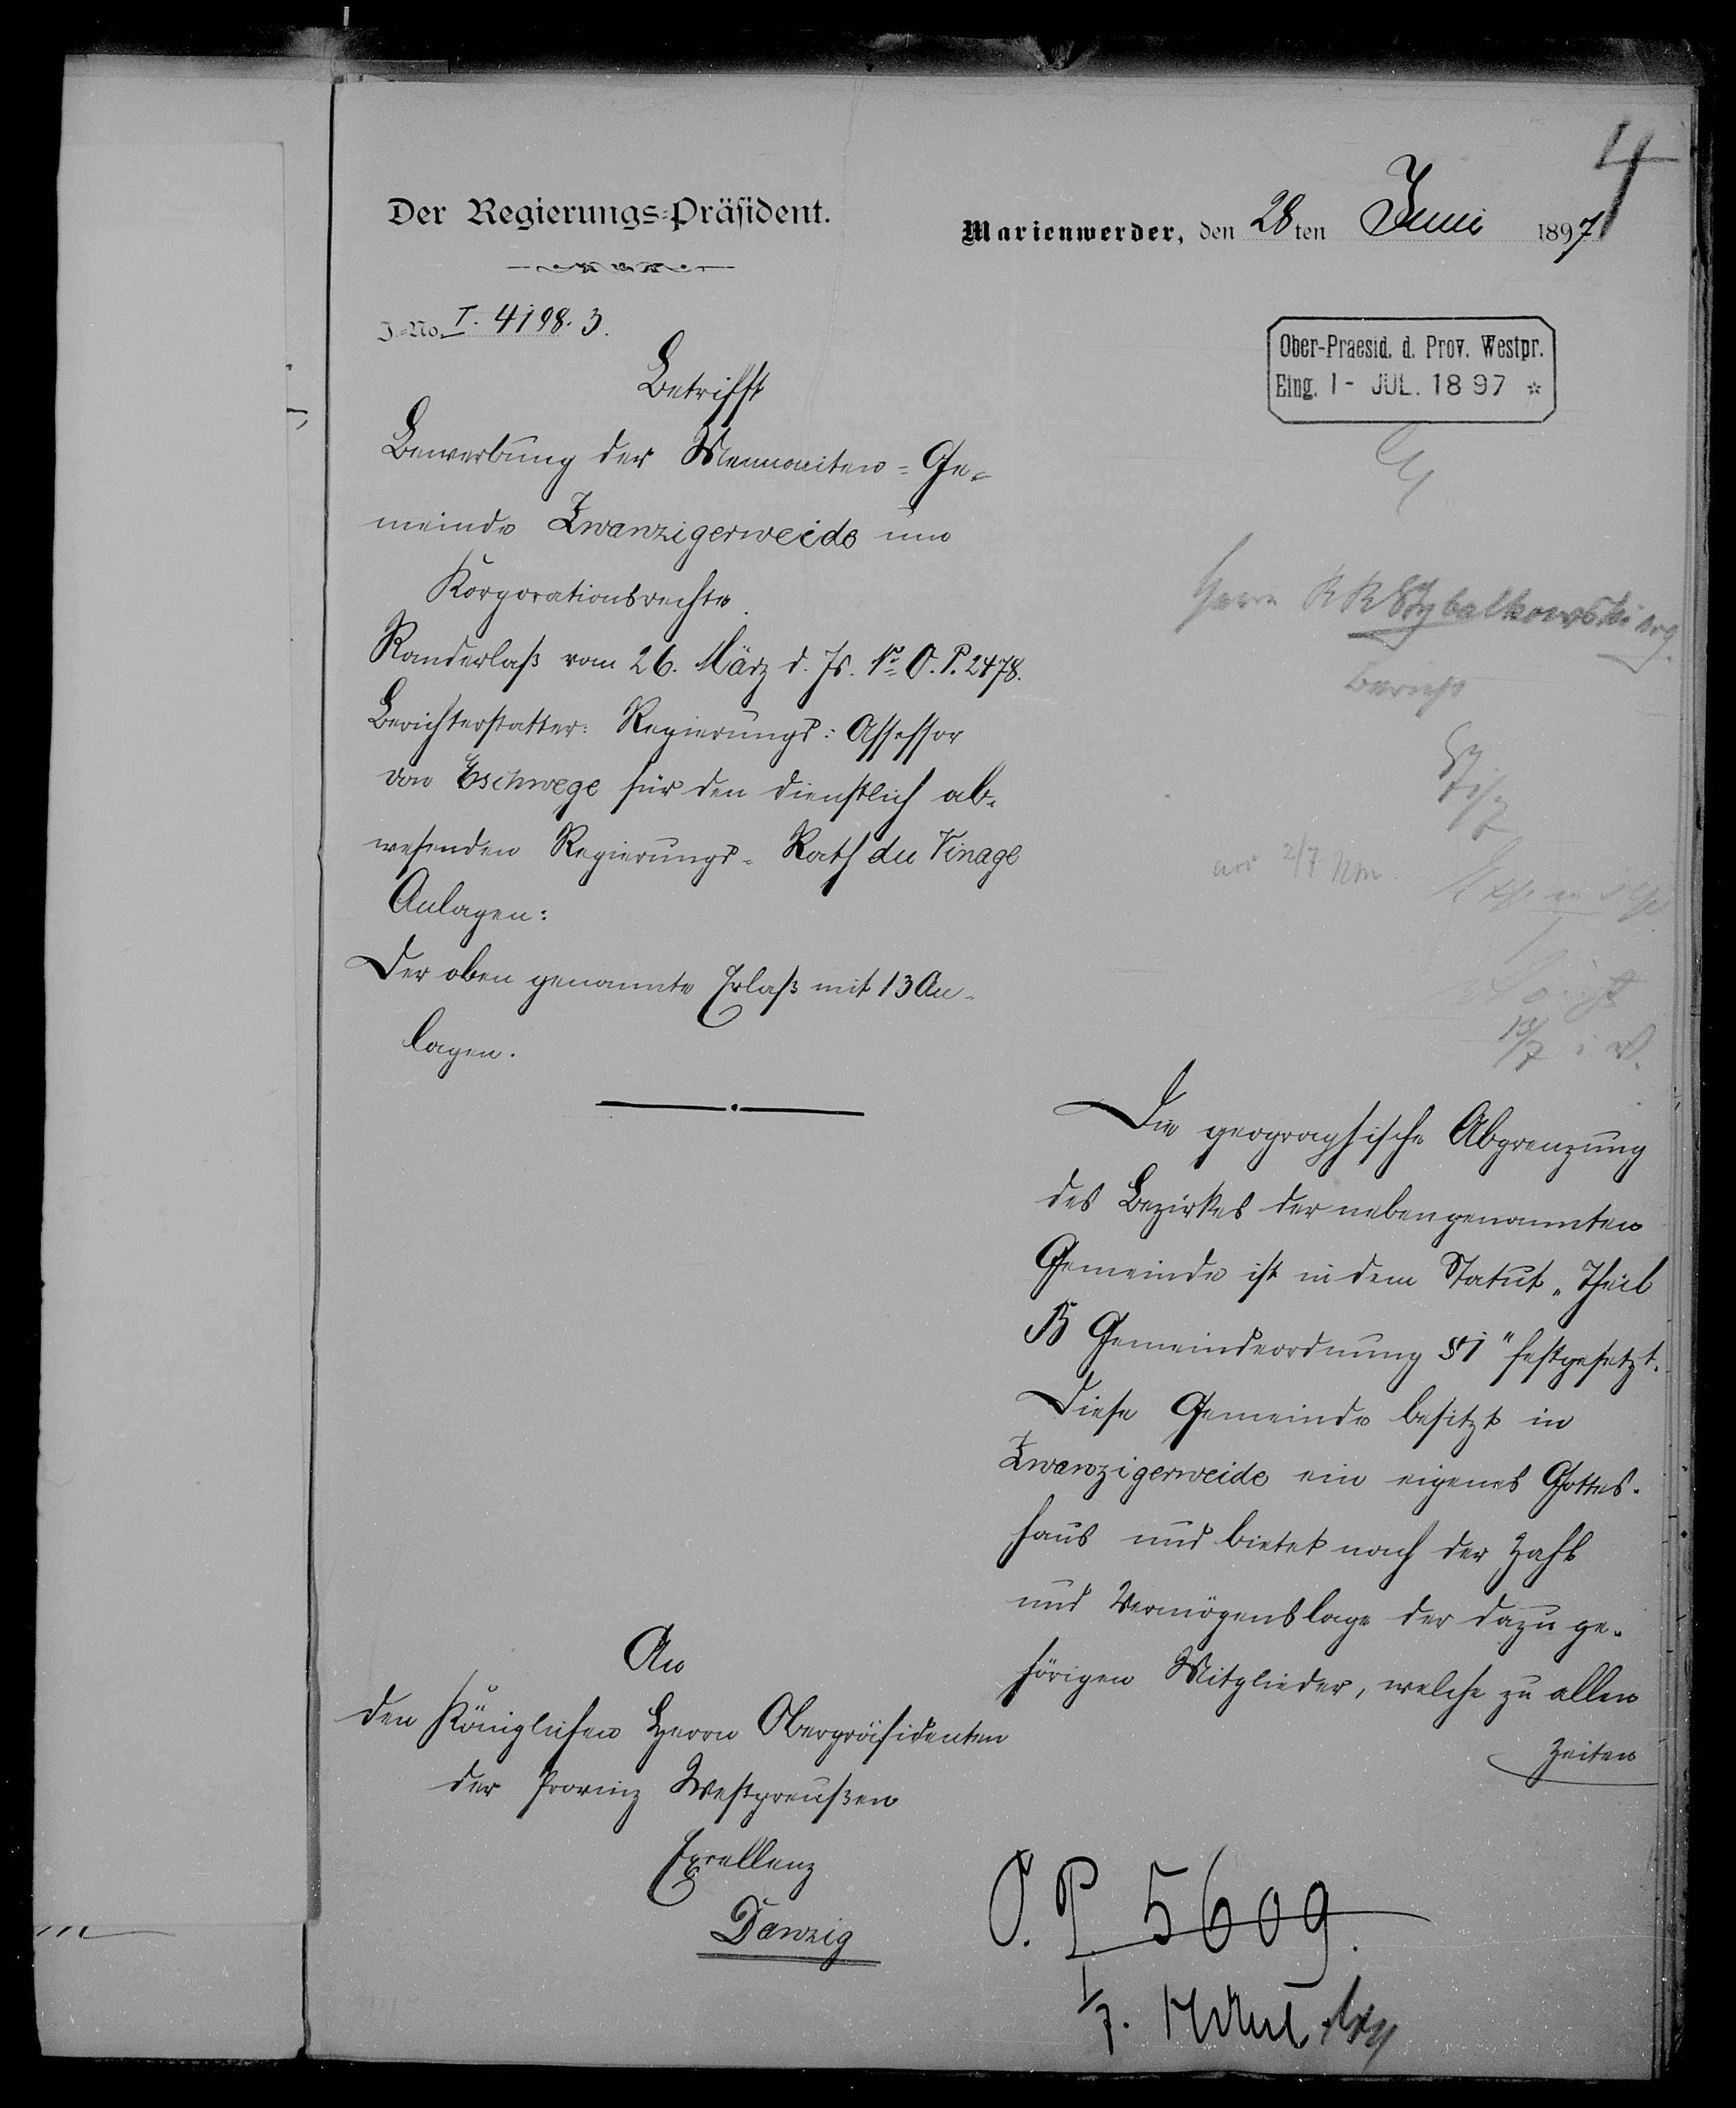 4
Der Regierungs-Präsident.
Marienwerder, den 28ten Juni 1897
J-No. I. 4198. 3.
Ober-Praesid. d. Prov. Westpr.
Eing. 1 - JUL. 1897 ☆
Betrifft
Bewerbung der Mennoniten-Ge-
meinde Zwanzigerweide um
Korporationsrechte.
Randerlaß vom 26. März d. Js. No O. P. 2478.
Berichterstatter: Regierungs-Assessor
von Eschwege für den dienstlich ab-
wesenden Regierungs-Rath du Vinage
Anlagen:
Der oben genannte Erlaß mit 13 An-
lagen.
Herrn
Bericht
2/7
13/7
Die geographische Abgrenzung
des Bezirkes der nebengenannten
Gemeinde ist in dem Statut „Theil
B Gemeindeordnung § 1" festgesetzt.
Diese Gemeinde besitzt in
Zwanzigerweide ein eigenes Gottes-
haus und bietet nach der Zahl
und Vermögenslage der dazu ge-
hörigen Mitglieder, welche zu allen
Zeiten
An
den Königlichen Herrn Oberpräsidenten
der Provinz Westpreußen
Excellenz
Danzig
O. P. 5609.
1/7.